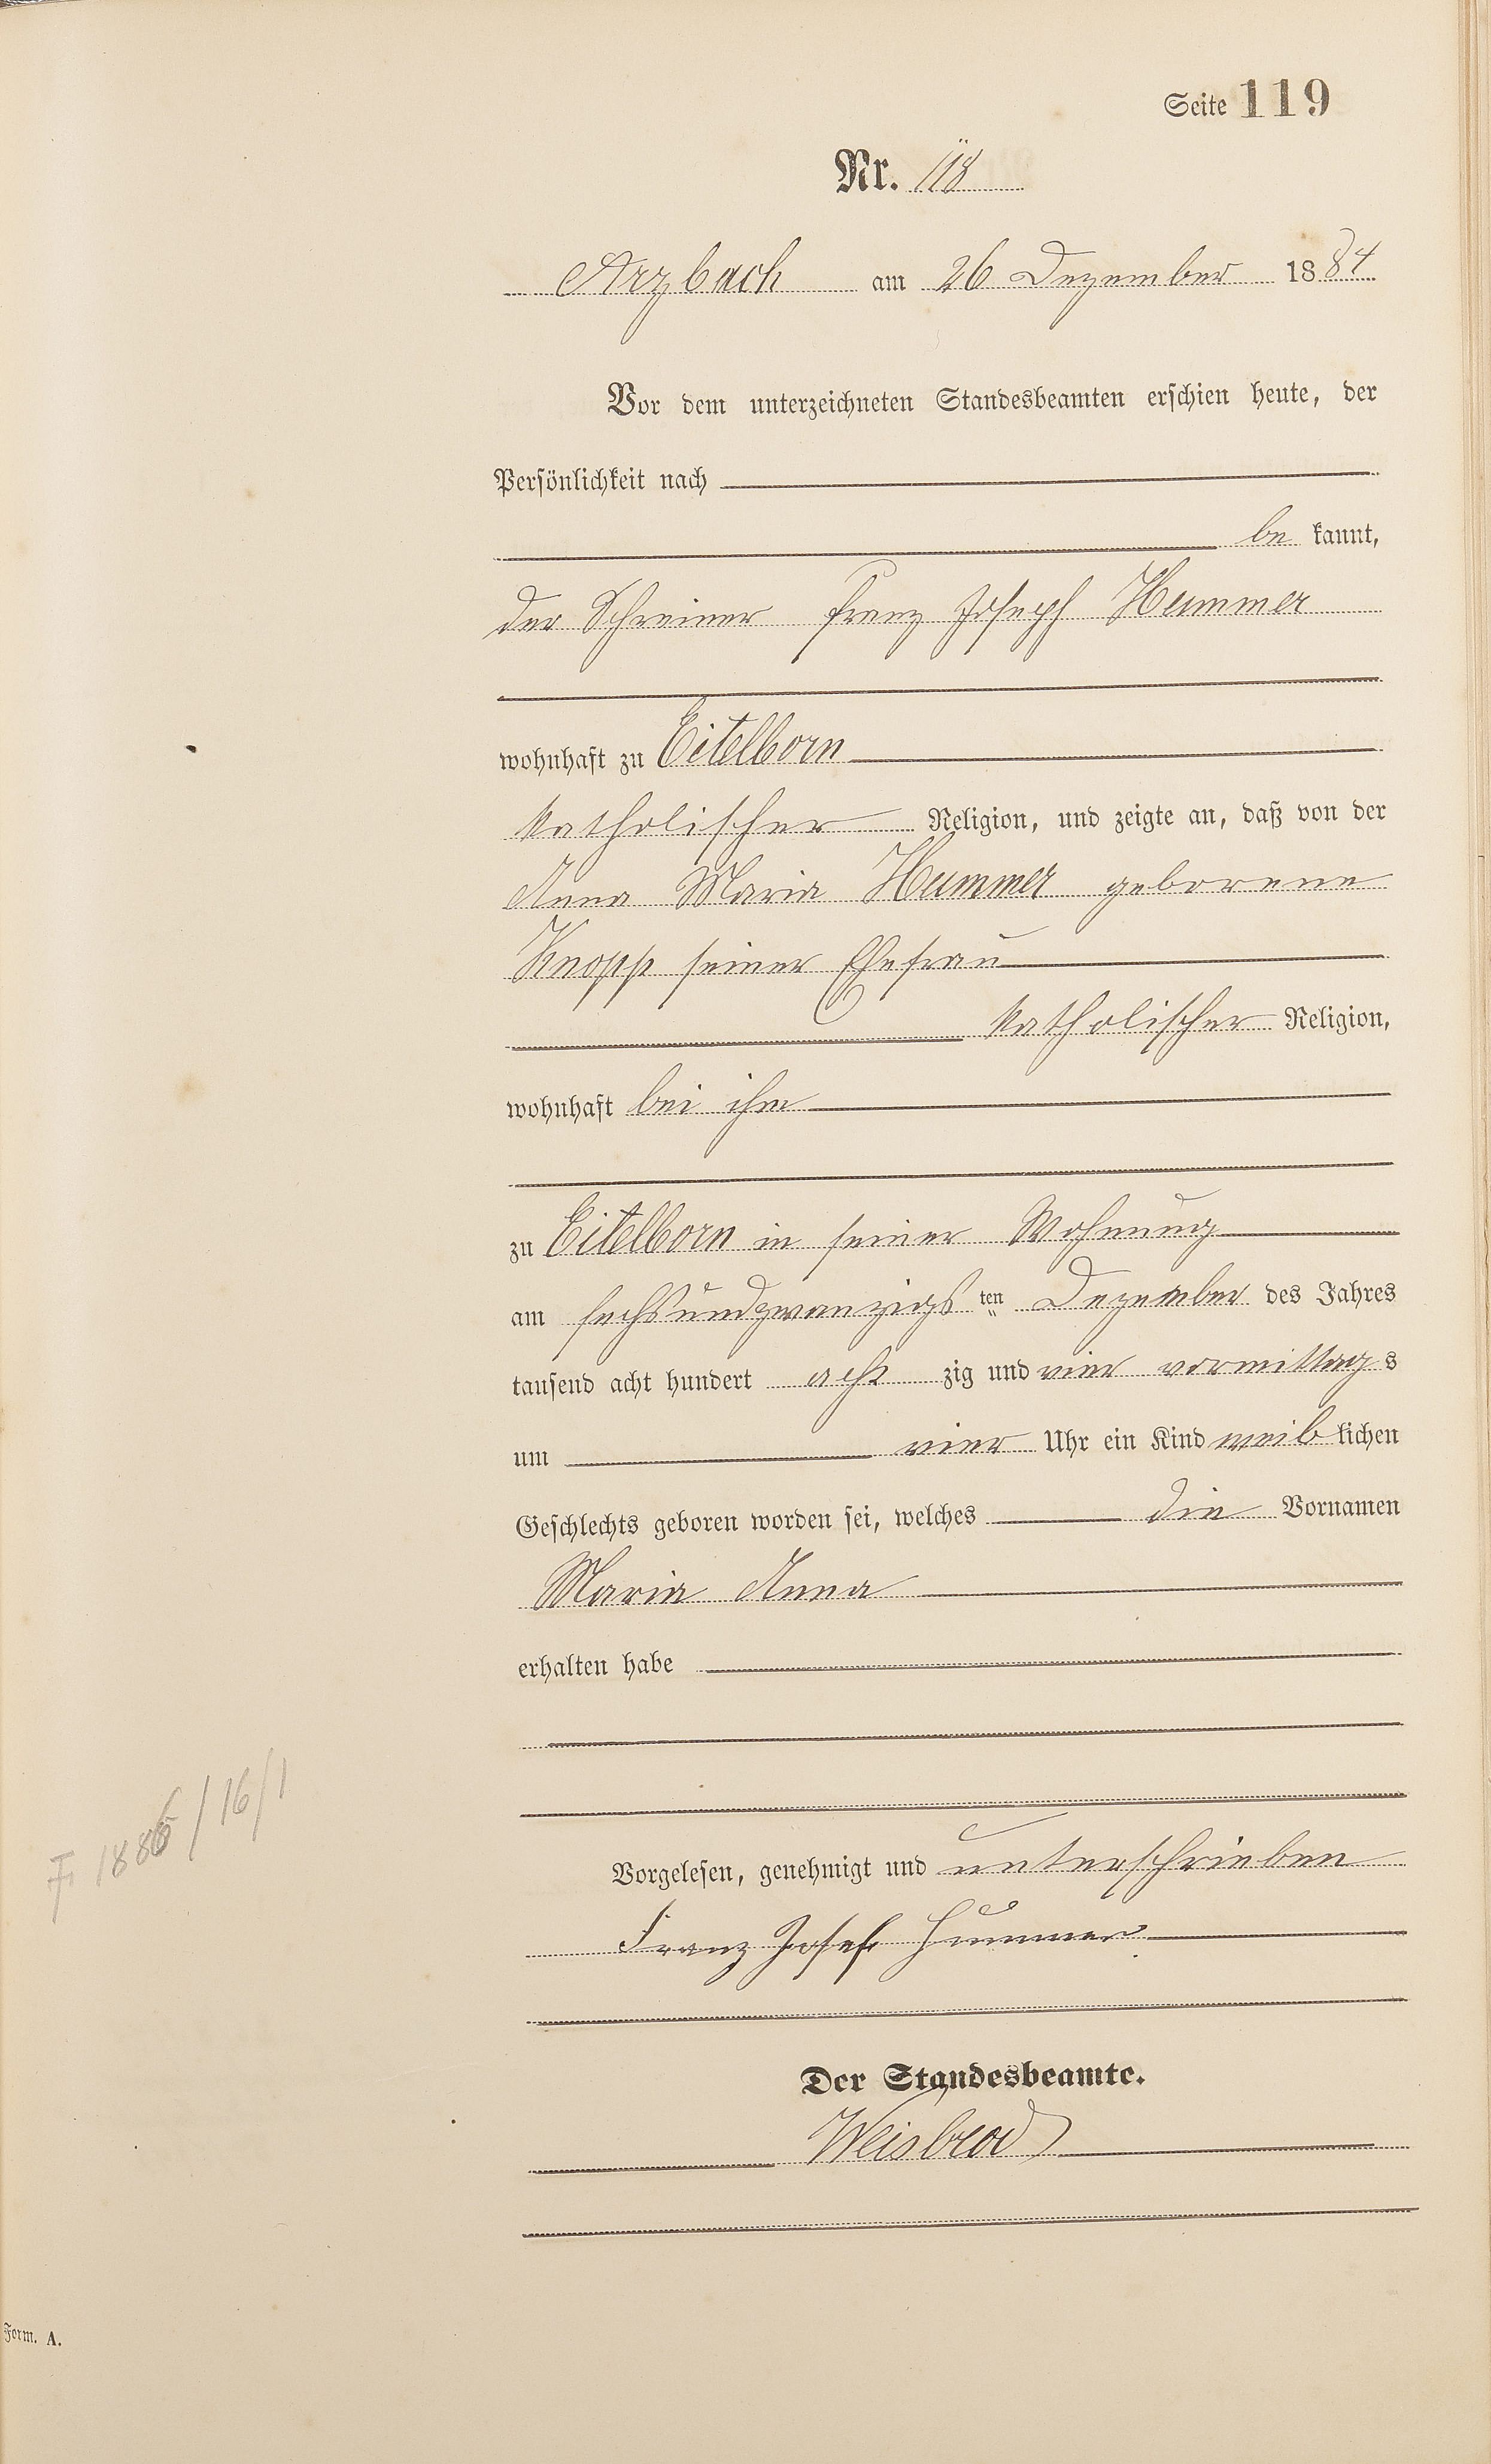 Seite 119
Nr. 118
Arzbach am 26 Dezember 1884
Vor dem unterzeichneten Standesbeamten erschien heute, der
Persönlichkeit nach
be kannt,
der Schreiner Franz Joseph Hummer
wohnhaft zu Eitelborn
katholischer Religion, und zeigte an, daß von der
Anna Maria Hummer geborene
Knopp seiner Ehefrau
katholischer Religion,
wohnhaft bei ihm
zu Eitelborn in seiner Wohnung
am sechsundzwanzigsten Dezember des Jahres
tausend acht hundert acht zig und vier vormittags
um vier Uhr ein Kind weiblichen
Geschlechts geboren worden sei, welches die Vornamen
Maria Anna
erhalten habe
F 1886/16/1
Vorgelesen, genehmigt und unterschrieben
Franz Josef Hummer
Der Standesbeamte.
Weisbrod
Form. A.